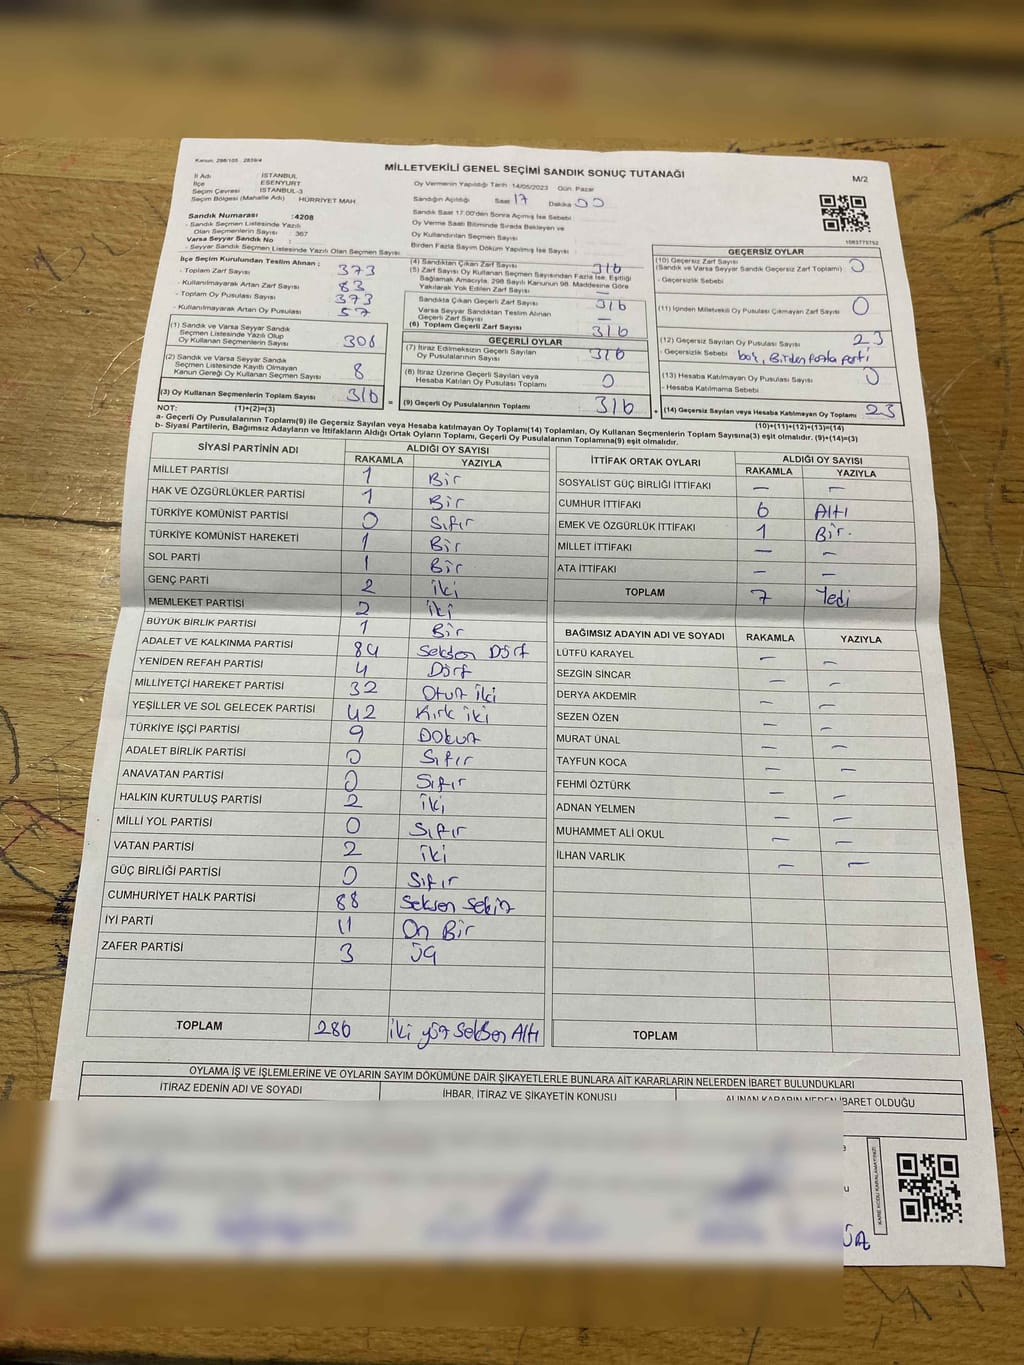 Kanun: 298/105 , 2839/4
MİLLETVEKİLİ GENEL SEÇİMİ SANDIK SONUÇ TUTANAĞI
M/2
İl Adı : İSTANBUL
İlçe : ESENYURT
Seçim Çevresi : İSTANBUL-3
Seçim Bölgesi (Mahalle Adı) : HÜRRİYET MAH.
Oy Vermenin Yapıldığı Tarih : 14/05/2023 Gün: Pazar
Sandığın Açıldığı Saat 17 Dakika 00
Sandık Saat 17.00'den Sonra Açılmış İse Sebebi
Oy Verme Saati Bitiminde Sırada Bekleyen ve
Oy Kullandırılan Seçmen Sayısı
Birden Fazla Sayım Döküm Yapılmış İse Sayısı
Sandık Numarası :4208
- Sandık Seçmen Listesinde Yazılı
Olan Seçmenlerin Sayısı : 367
Varsa Seyyar Sandık No :
- Seyyar Sandık Listesinde Yazılı Olan Seçmen Sayısı
İlçe Seçim Kurulundan Teslim Alınan :
- Toplam Zarf Sayısı 373
- Kullanılmayarak Artan Zarf Sayısı 83
- Toplam Oy Pusulası Sayısı 373
- Kullanılmayarak Artan Oy Pusulası 57
(1) Sandık ve Varsa Seyyar Sandık
Seçmen Listesinde Yazılı Olup
Oy Kullanan Seçmenlerin Sayısı 308
(2) Sandık ve Varsa Seyyar Sandık
Seçmen Listesinde Kayıtlı Olmayan
Kanun Gereği Oy Kullanan Seçmen Sayısı 8
(3) Oy Kullanan Seçmenlerin Toplam Sayısı 316
(4) Sandıktan Çıkan Zarf Sayısı 316
(5) Zarf Sayısı Oy Kullanan Seçmen Sayısından Fazla İse, Eşitliği
Bağlamak Amacıyla, 298 Sayılı Kanunun 98. Maddesine Göre
Yakılarak Yok Edilen Zarf Sayısı —
Sandıkta Çıkan Geçerli Zarf Sayısı 316
Varsa Seyyar Sandıktan Teslim Alınan
Geçerli Zarf Sayısı —
(6) Toplam Geçerli Zarf Sayısı 316
GEÇERLİ OYLAR
(7) İtiraz Edilmeksizin Geçerli Sayılan
Oy Pusulalarının Sayısı 316
(8) İtiraz Üzerine Geçerli Sayılan veya
Hesaba Katılan Oy Pusulası Toplamı 0
= (9) Geçerli Oy Pusulalarının Toplamı 316
1083775752
GEÇERSİZ OYLAR
(10) Geçersiz Zarf Sayısı
(Sandık ve Varsa Seyyar Sandık Geçersiz Zarf Toplamı) 0
- Geçersizlik Sebebi
(11) İçinden Milletvekili Oy Pusulası Çıkmayan Zarf Sayısı 0
(12) Geçersiz Sayılan Oy Pusulası Sayısı 23
- Geçersizlik Sebebi boş, Birden fazla parti
(13) Hesaba Katılmayan Oy Pusulası Sayısı 0
- Hesaba Katılmama Sebebi
+ (14) Geçersiz Sayılan veya Hesaba Katılmayan Oy Toplamı 23
NOT: (1)+(2)=(3) (10)+(11)+(12)+(13)=(14)
a- Geçerli Oy Pusulalarının Toplamı(9) ile Geçersiz Sayılan veya Hesaba Katılmayan Oy Toplamı(14) Toplamları, Oy Kullanan Seçmenlerin Toplam Sayısına(3) eşit olmalıdır. (9)+(14)=(3)
b- Siyasi Partilerin, Bağımsız Adayların ve İttifakların Aldığı Ortak Oyların Toplamı, Geçerli Oy Pusulalarının Toplamına(9) eşit olmalıdır.
SİYASİ PARTİNİN ADI ALDIĞI OY SAYISI
RAKAMLA YAZIYLA
MİLLET PARTİSİ 1 Bir
HAK VE ÖZGÜRLÜKLER PARTİSİ 1 Bir
TÜRKİYE KOMÜNİST PARTİSİ 0 Sıfır
TÜRKİYE KOMÜNİST HAREKETİ 1 Bir
SOL PARTİ 1 Bir
GENÇ PARTİ 2 iki
MEMLEKET PARTİSİ 2 iki
BÜYÜK BİRLİK PARTİSİ 1 Bir
ADALET VE KALKINMA PARTİSİ 84 Seksen Dört
YENİDEN REFAH PARTİSİ 4 Dört
MİLLİYETÇİ HAREKET PARTİSİ 32 Otuz iki
YEŞİLLER VE SOL GELECEK PARTİSİ 42 Kırk iki
TÜRKİYE İŞÇİ PARTİSİ 9 Dokuz
ADALET BİRLİK PARTİSİ 0 Sıfır
ANAVATAN PARTİSİ 0 Sıfır
HALKIN KURTULUŞ PARTİSİ 2 iki
MİLLİ YOL PARTİSİ 0 Sıfır
VATAN PARTİSİ 2 iki
GÜÇ BİRLİĞİ PARTİSİ 0 Sıfır
CUMHURİYET HALK PARTİSİ 88 Seksen Sekiz
İYİ PARTİ 11 On Bir
ZAFER PARTİSİ 3 üç
TOPLAM 286 iki yüz seksen Altı
İTTİFAK ORTAK OYLARI ALDIĞI OY SAYISI
RAKAMLA YAZIYLA
SOSYALİST GÜÇ BİRLİĞİ İTTİFAKI — —
CUMHUR İTTİFAKI 6 Altı
EMEK VE ÖZGÜRLÜK İTTİFAKI 1 Bir.
MİLLET İTTİFAKI — —
ATA İTTİFAKI — —
TOPLAM 7 Yedi
BAĞIMSIZ ADAYIN ADI VE SOYADI RAKAMLA YAZIYLA
LÜTFÜ KARAYEL — —
SEZGİN SİNCAR — —
DERYA AKDEMİR — —
SEZEN ÖZEN — —
MURAT ÜNAL — —
TAYFUN KOCA — —
FEHMİ ÖZTÜRK — —
ADNAN YELMEN — —
MUHAMMET ALİ OKUL — —
İLHAN VARLIK — —
TOPLAM
OYLAMA İŞ VE İŞLEMLERİNE VE OYLARIN SAYIM DÖKÜMÜNE DAİR ŞİKAYETLERLE BUNLARA AİT KARARLARIN NELERDEN İBARET BULUNDUKLARI
İTİRAZ EDENİN ADI VE SOYADI İHBAR, İTİRAZ VE ŞİKAYETİN KONUSU ALINAN KARARIN NEDEN İBARET OLDUĞU
KARE KODU KARALAMAYINIZ!